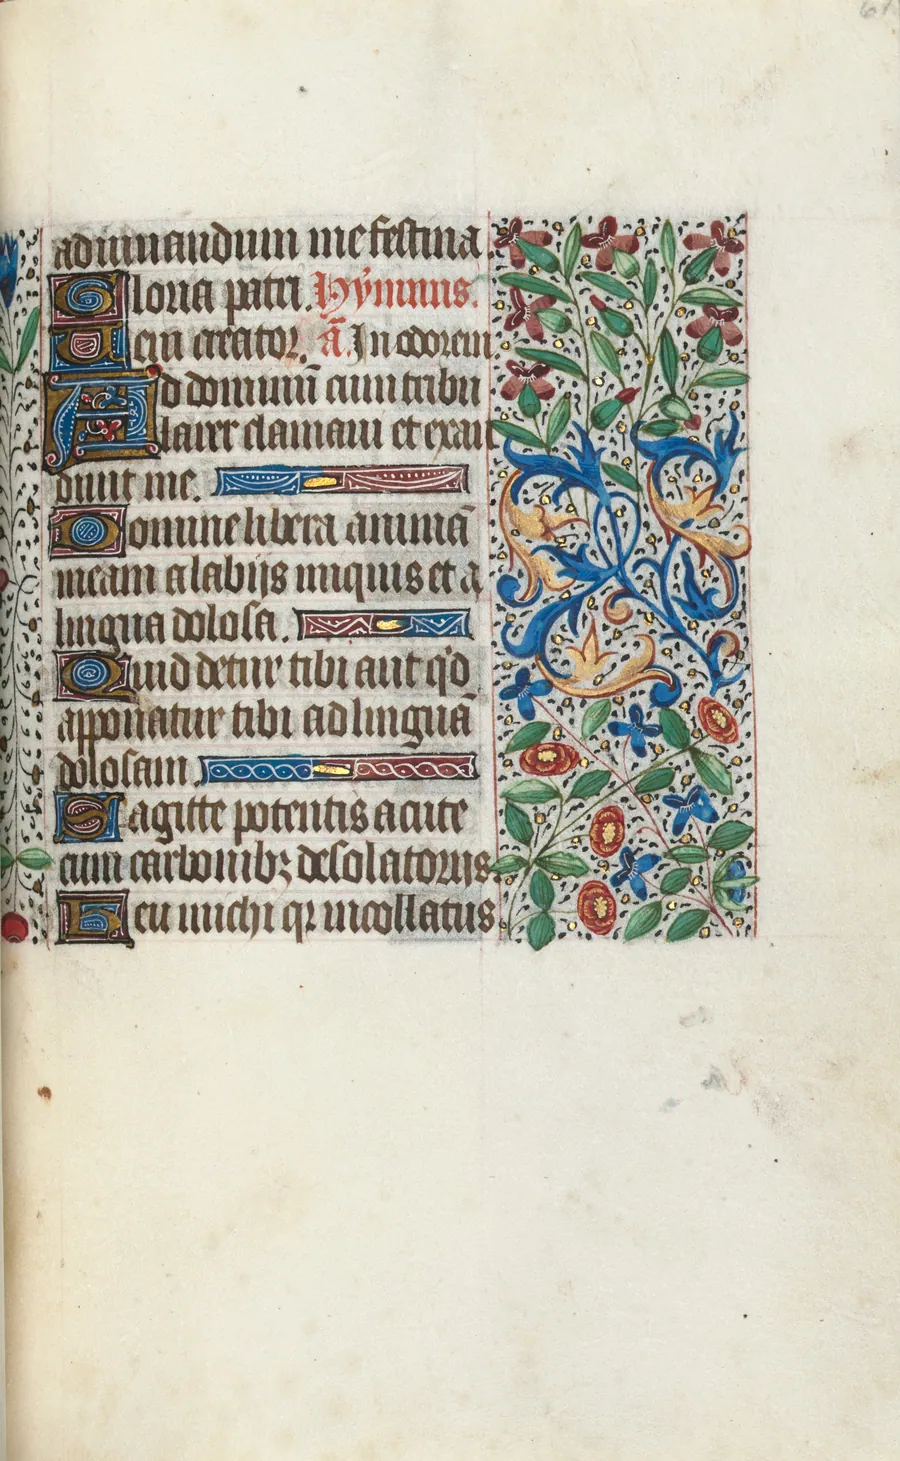 adiuuandum me festina
Gloria patri. Hÿmnus.
Veni creator. ã. In odorem
Ad dominū cum tribu
larer clamaui et exau
diuit me.
Domine libera animā
meam a labijs iniquis et a
lingua dolosa.
Quid detur tibi aut qd
apponatur tibi ad linguā
dolosam.
Sagitte potentis acute
cum carbonibꝫ desolatorijs
Heu michi qr incollatus